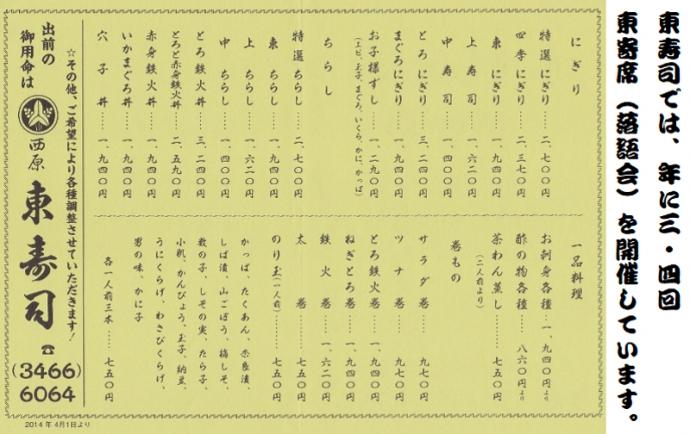 東寿司では、年に三・四回
東寄席（落語会）を開催しています。
にぎり
特選にぎり…二、七〇〇円
四季にぎり…二、三七〇円
東にぎり…一、九四〇円
上寿司…一、六二〇円
中寿司…一、四〇〇円
とろにぎり…三、二四〇円
まぐろにぎり…一、九四〇円
お子様ずし…一、二九〇円
（エビ、玉子、まぐろ、いくら、かに、かっぱ）
ちらし
特選ちらし…二、七〇〇円
東ちらし…一、九四〇円
上ちらし…一、六二〇円
中ちらし…一、四〇〇円
とろ鉄火丼…三、二四〇円
とろと赤身鉄火丼 二、五九〇円
赤身鉄火丼…一、九四〇円
いかまぐろ丼…一、九四〇円
穴子丼…一、九四〇円
一品料理
お刺身各種 一、九四〇円より
酢の物各種…八六〇円より
茶わん蒸し…七五〇円
（二人前より）
巻もの
サラダ巻…九七〇円
ツナ巻…九七〇円
とろ鉄火巻…一、九四〇円
ねぎとろ巻…一、九四〇円
鉄火巻…一、六二〇円
太巻…七五〇円
のり玉（一人前）…七五〇円
かっぱ、たくあん、奈良漬、
しば漬、山ごぼう、梅しそ、
数の子、しその実、たら子、
小肌、かんぴょう、玉子、納豆、
うにくらげ、わさびくらげ、
男の味、かに子
各一人前三本…七五〇円
☆その他、ご希望により各種調整させていただきます！
出前の
御用命は
西原
東寿司
☎
(3466)
6064
2014年4月1日より